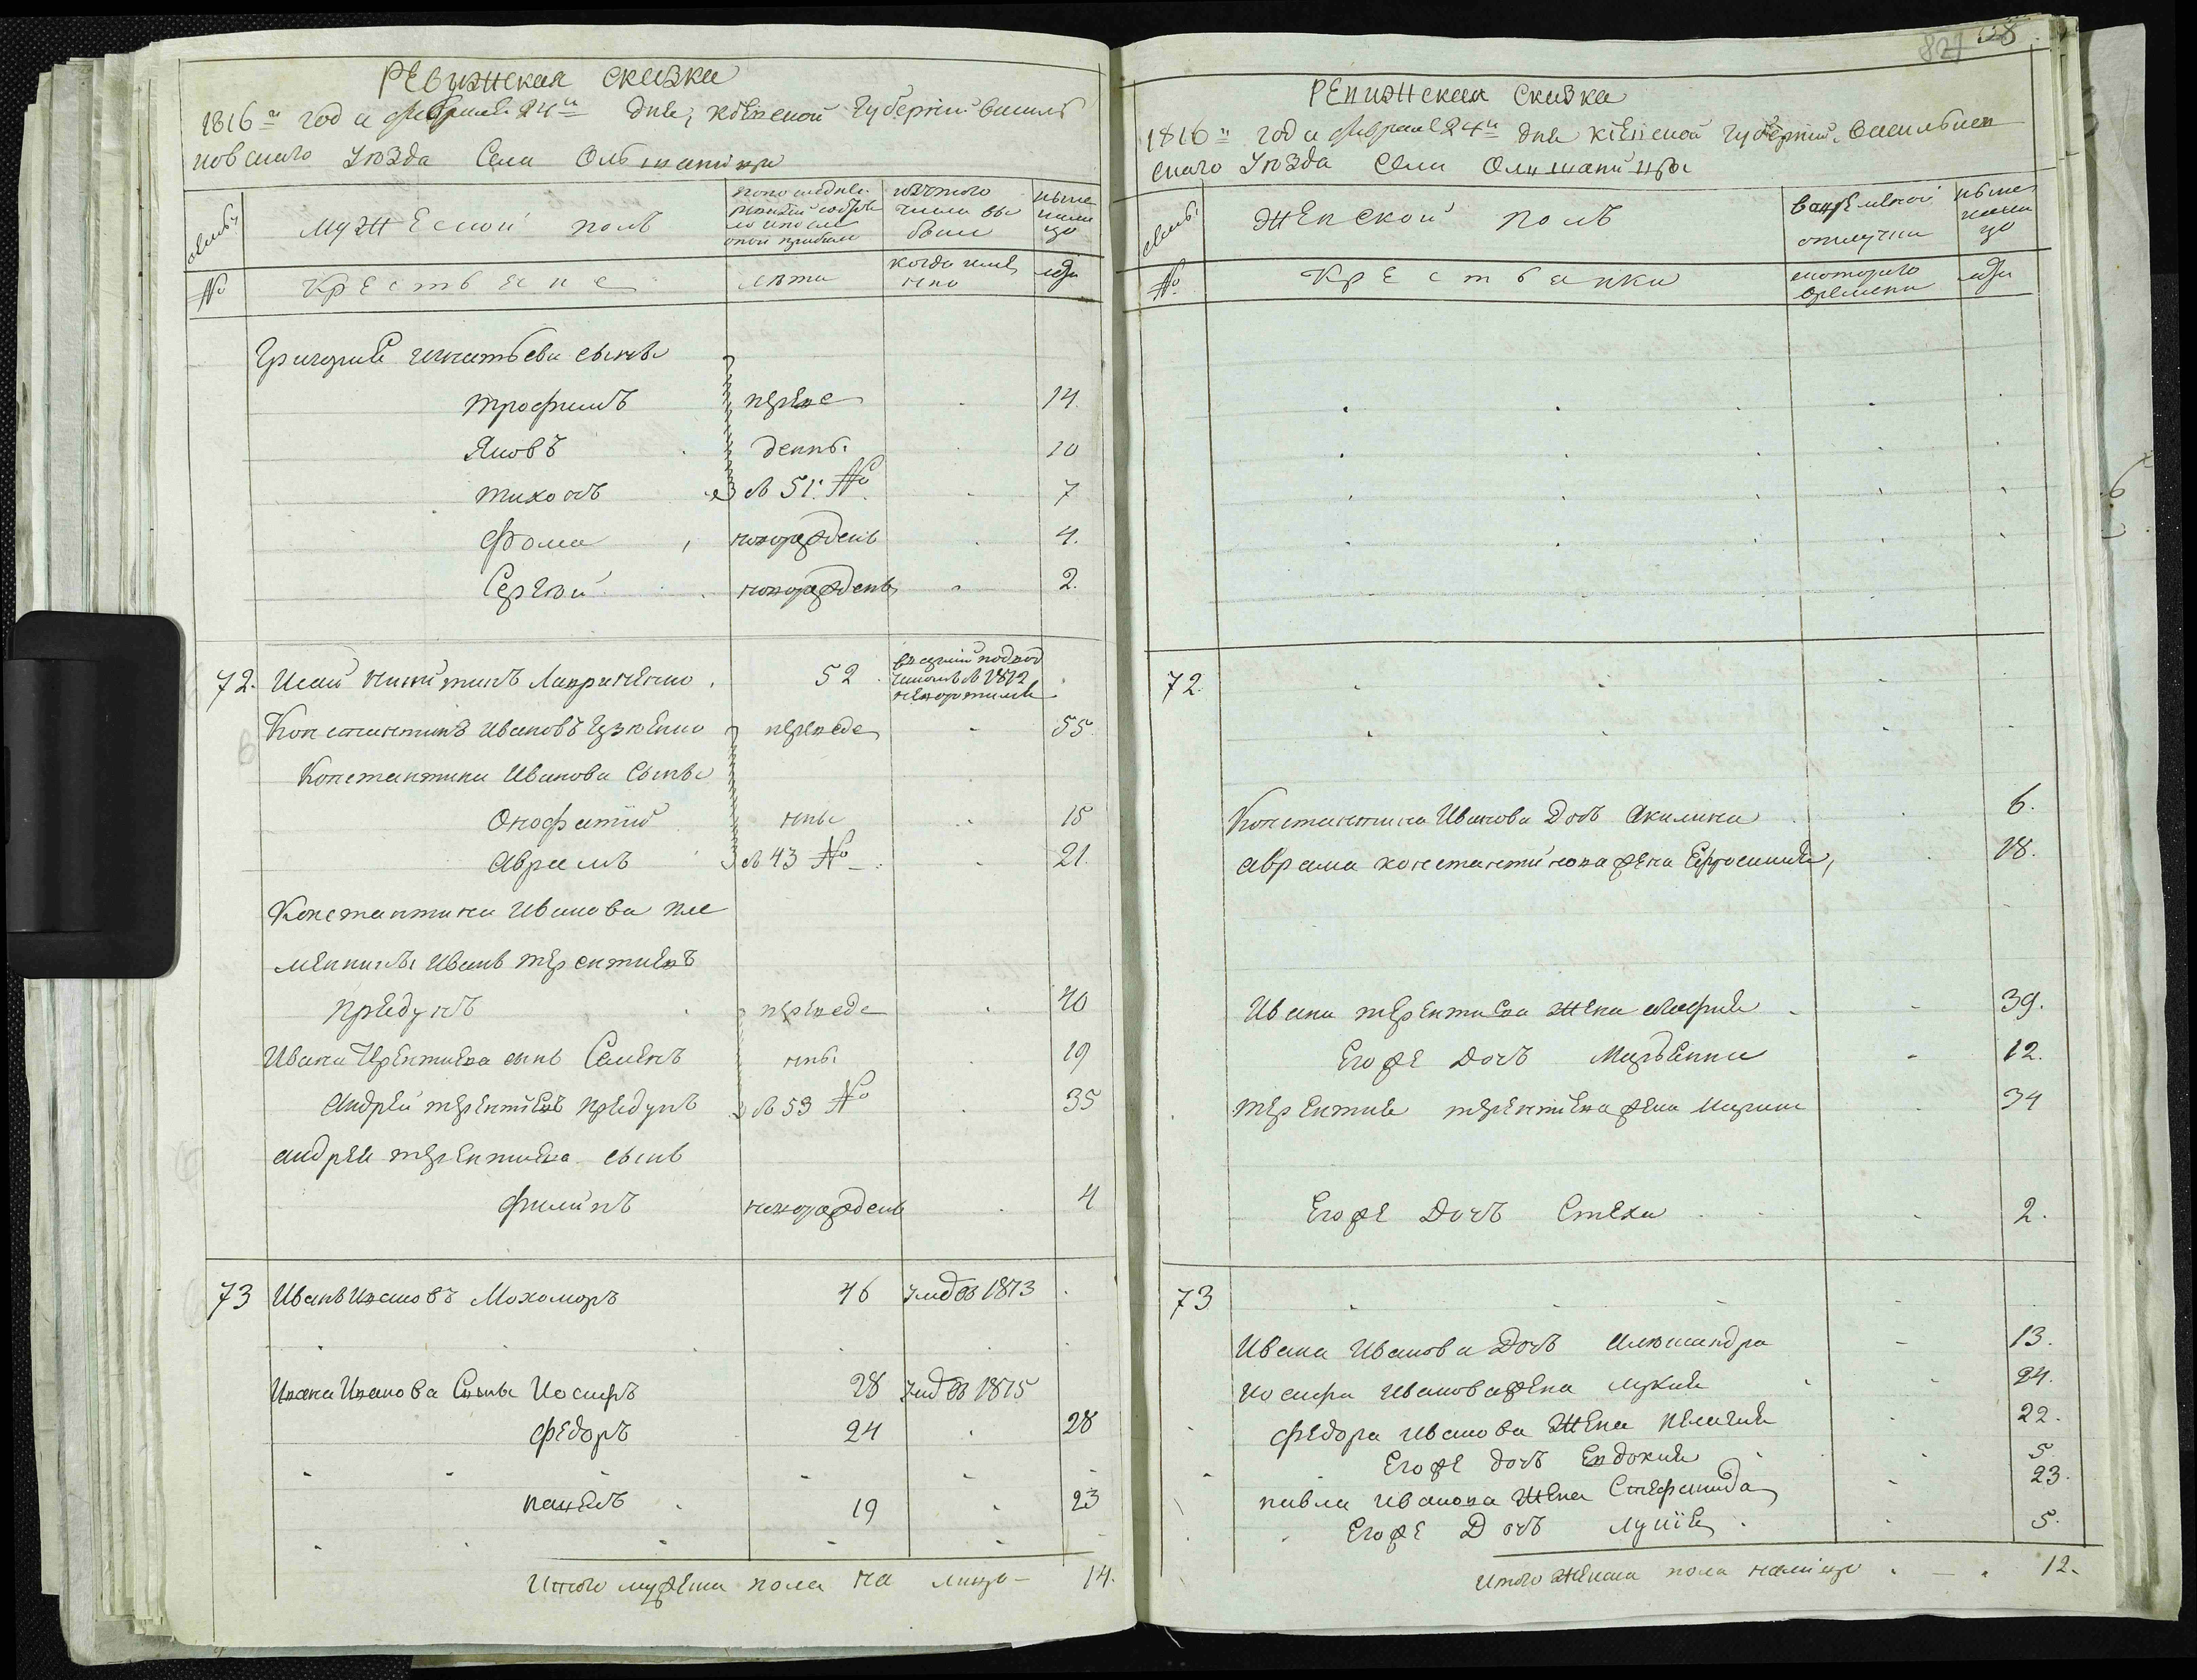 Ревижская сказка
1816го года февраля 24го дня, Кіевской губерніи Василь
ковскаго уѣзда села Ольшаницы
семьи
мужеской полъ
по последней
ревизіи состоя
ло и после
оной прибыло
изъ того
числа вы
было
ныне
на ли
цо
№
Крестьяне
лѣта
когда имен
но
лѣта
Григорія Игнатьева сыновья
Трофимъ переве 14.
Яковъ денны 10
Тихонъ изъ 51. № 7
Фома новорожденъ 4.
Сергѣй новорожденъ 2.
72. Исай Никитинъ Лавриненко 52
1812
Константинъ Ивановъ переведе 55.
Константина Иванова сыновья
Онофрій ны 15
Аврамъ изъ 43 № 21.
Константина Иванова пле
менникъ Иванъ Терентиевъ
Предунъ переведе 40
Ивана Терентиева сынъ Семенъ ны 19
Андрей Терентіевъ Предунъ изъ 53 № 35
Андрея Терентиева сынъ
Филипъ новорожденъ 4
73 Иванъ Ивановъ Мохоморъ 46 умер въ 1813
Ивана Иванова сыны Иосифъ 28 умер въ 1815
Федоръ 24 28
Павелъ 19 23
Итого мужеска пола на лицо 14.
821 58
Ревижская сказка
1816го года февраля 24го дня Кіевской губерніи Васильков
скаго уѣзда села Ольшаницы
семьи
женской полъ
во временной
отлучки
ныне
на ли
цо
№
Крестьянки
с котораго
времени
лѣта
72
Константина Иванова дочь Акилина 6.
Аврама Константинова жена Ефросиния, 18.
Ивана Терентиева жена Мафия 39.
Егоже дочь 12.
Терентия Терентиева жена Марина 34
Егоже дочь Стеха 2.
73
Ивана Иванова дочь Александра 13.
Иосифа Иванова жена Лукия 24.
Федора Иванова жена Пелагия 22.
Егоже дочь Евдокия 5
Павла Иванова жена Стефанида 23.
Егоже дочь Лукія 5.
Итого женска пола на лицо 12.